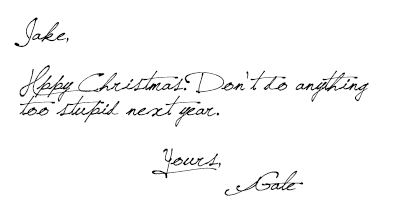 Jake,
Hppy Christmas. Don't do anything
too stupid next year.
Yours,
Gale